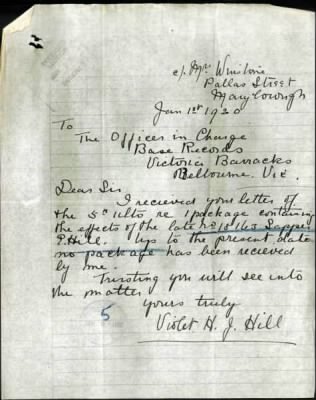 c/. Mrs Winstone
Pallas Street
Maryborough
Jan 1st 1920
To
The Officer in Charge
Base Records
Victoria Barracks
Melbourne. Vic.
Dear Sir
I recieved your letter of
the 5th ulto re 1 package containing
the effects of the late No 18163 Sapper
E. Hill. Up to the present date
no package has been recieved
by me.
Trusting you will see into
the matter
Yours truly
5
Violet H. J. Hill